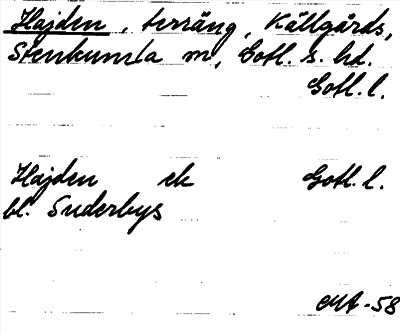 Hajden, terräng, Källgårds,
Stenkumla m, Gotl. s. hd.
Gotl. l.
Hajden ek Gotl. l.
bl. Suderbys
MA-58